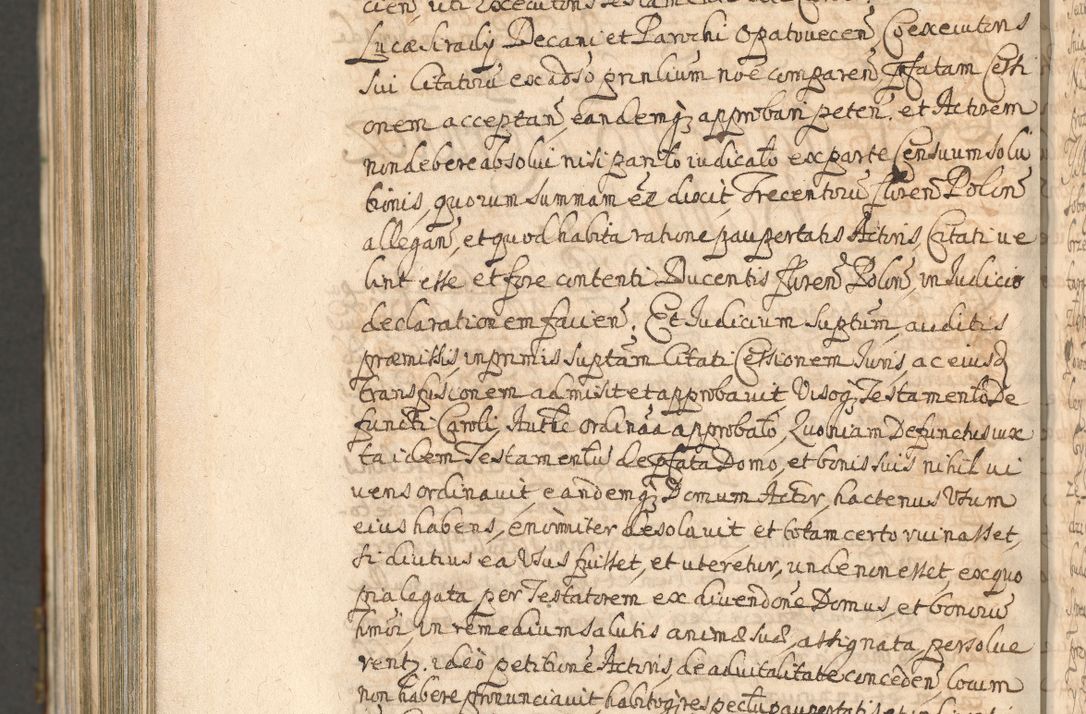 Lucæ Siradÿ Decani et Parochi Opatovecen̄ Coexecutoris
sui Citatorū ex adso prinlium noē comparen̄ Pfatam Cessi
onem acceptan̄, eandemq₃ approbari peten̄. et Actorem
non debere absolui nisi parito iudicato ex parte Censuum solu
tionis, quorum summam ēe dixit Trecentorū floren̄ Polon̄
allegan̄, et quod habita ratione paupertatis Actoris, Citati ve
lint esse et fore contenti Ducentis floren̄ Polon̄, in Judicio
declarationem facien̄. Et Judicium suptum, auditis
præmissis, inprimis suptam Citati Cessionem Juris, ac eiusq
transfusionem admisit et approbavit, Visoq₃ Testamento De
functi Caroli, Autte ordinaa approbato, Quoniam Defunctus iux
ta idem Testamentū de pfata Domo, et bonis suis nihil vi
vens ordinavit eandemq₃ Domum Actor, hactenus Usum
eius habens, enormiter desolavit et totam certo ruinasset,
si diutius ea Usus fuisset, et uteretur, unde non esset, ex quo
pia legata per Testatorem ex divendone Domus, et bonorū
hmōi, in remedium salutis animæ suæ, assignata, persolve
rentz. ideo petitione Actoris de advitalitate conceden̄ locum
non habere pronunciavit habitoq₃ respectu paupertatis